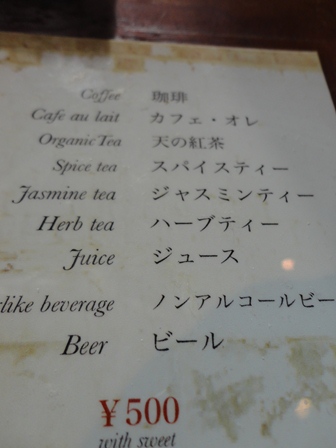 Coffee 珈琲
Cafe au lait カフェ・オレ
Organic Tea 天の紅茶
Spice tea スパイスティー
Jasmine tea ジャスミンティー
Herb tea ハーブティー
Juice ジュース
like beverage ノンアルコールビー
Beer ビール
¥500
with sweet